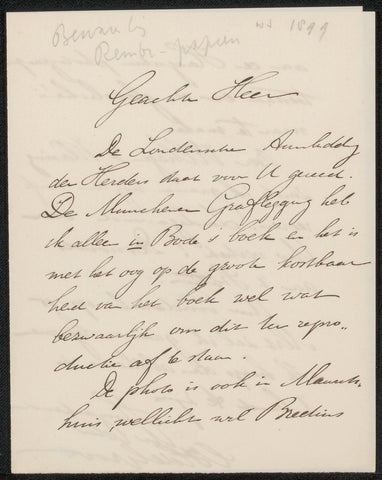 Bewaar bij
Rembr - papieren
1899
Geachte Heer
De Londensche Aanbidding
der Herders staat voor U gereed.
De Munchener Graflegging heb
ik alleen in Bode's boek en het is
met het oog op de groote kostbaar
heid van het boek wel wat
bezwaarlijk om dit ter repro„
ductie af te staan.
De photo is ook in Maurits
huis, wellicht wil Bredius